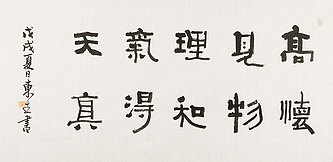 高懷
見物
理和
氣得
天真
戊戌夏日東立書